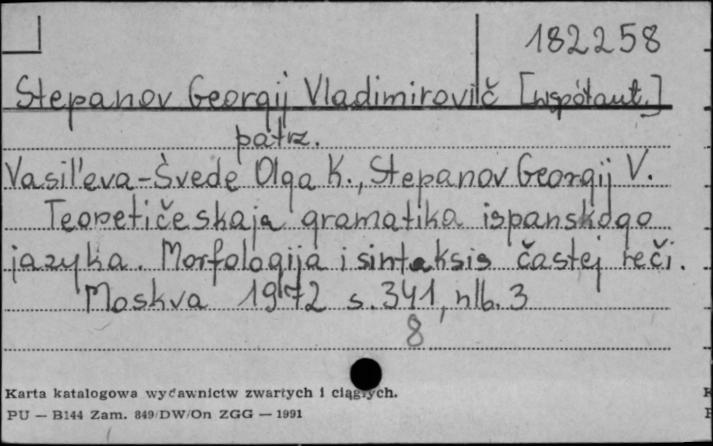 182258
Stepanov Georgij Vladimirovič [współaut.]
patrz.
Vasil'eva-Švede Olga K., Stepanov Georgij V.
Teoretičeskaja gramatika ispanskogo
jazyka. Morfologija i sintaksis častej reči.
Moskva 1972 s. 341, nlb. 3
8
Karta katalogowa wydawnictw zwartych i ciągłych.
PU — B144 Zam. 849/DW/On ZGG — 1991